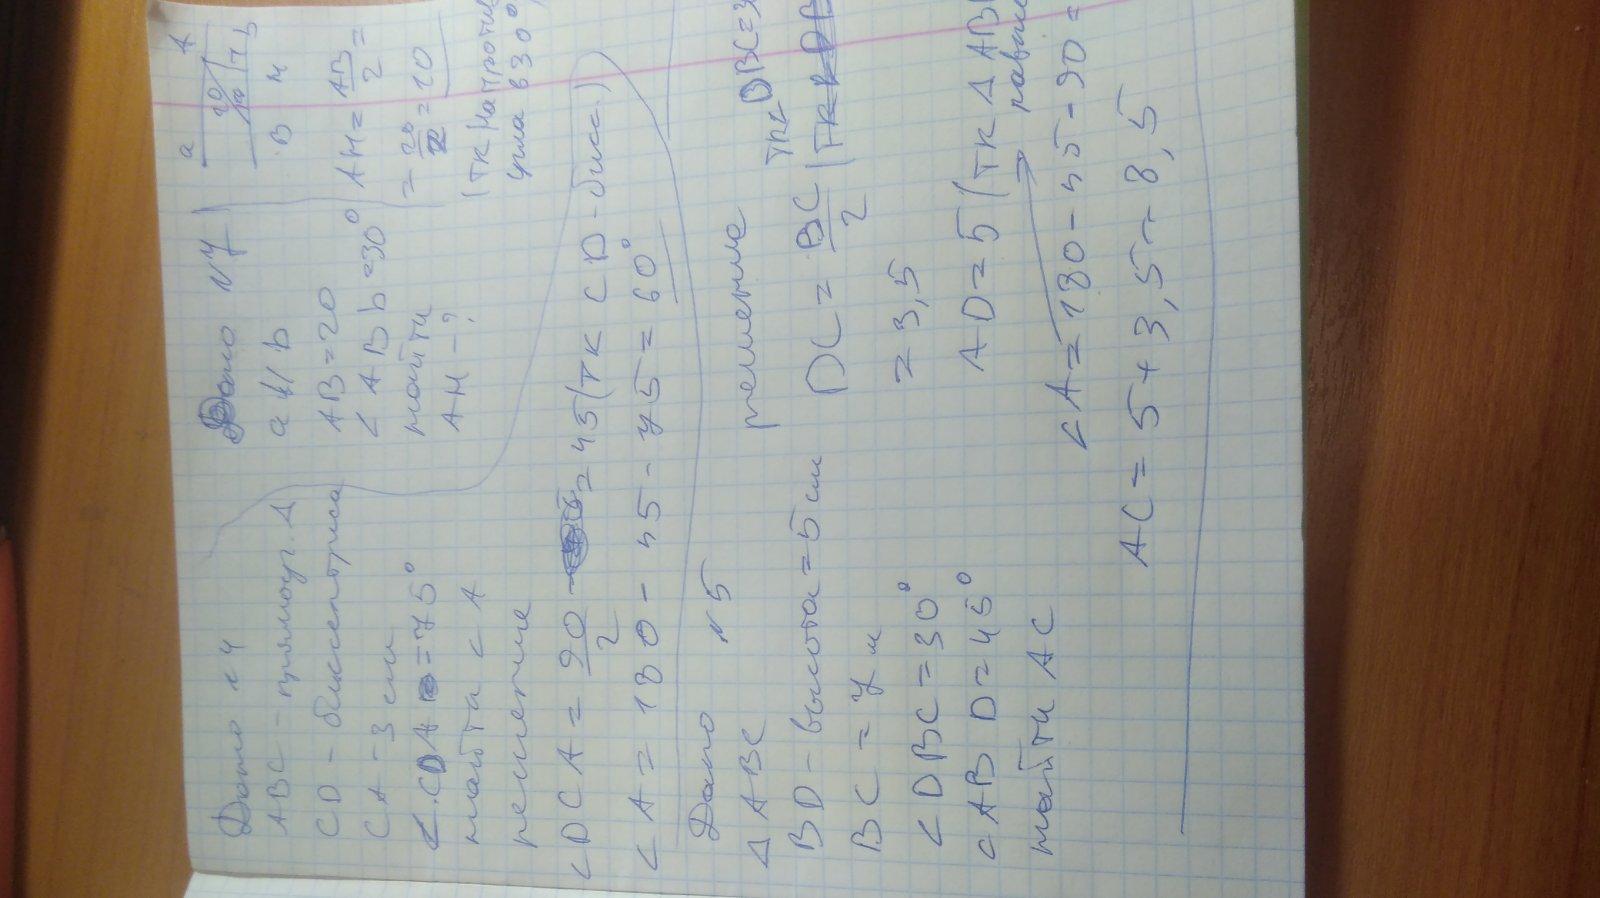 Дано №4
ABC - прямоуг. Δ
CD - биссектриса
CA - 3 см
<CDA = 75°
найти <A
решение
<DCA = 90/2 = 45 (тк CD - бисс.)
<A = 180 - 45 - 75 = 60°
Дано №7
a || b
AB = 20
<ABb = 30°
найти
AH - ?
a A
20
B H b
AH = AB/2 =
= 20/2 = 10
(тк напротив
угла в 30°
Дано №5
Δ ABC
BD - высота = 5 см
BC = 7 м
<DBC = 30°
<ABD = 45°
найти AC
решение
DC = BC/2 тк <DBC = 3
= 3,5
AD = 5 (тк Δ AB
<A = 180 - 45 - 90 =
AC = 5 + 3,5 = 8,5